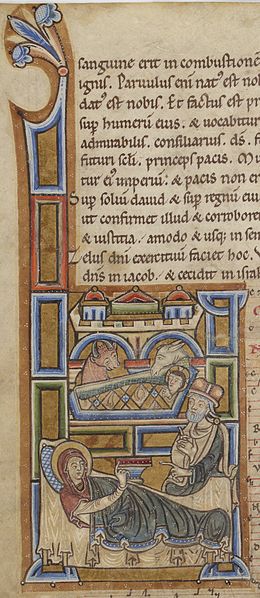 sanguine erit in combustione
ignis. Parvulus eni nat' est no
dat' est nobis. Et factus est pr
sup humerū eius. & vocabitur
admirabilis. consiliarius. ds. f
futuri scli. princeps pacis. Mu
tur ei' imperiū. & pacis non er
Sup soliū david & sup regnū eiu
ut confirmet illud & corrobore
& iusticia. amodo & usq; in sem
Zelus dni exercituū faciet hoc. V
dns in iacob. & cecidit in israh